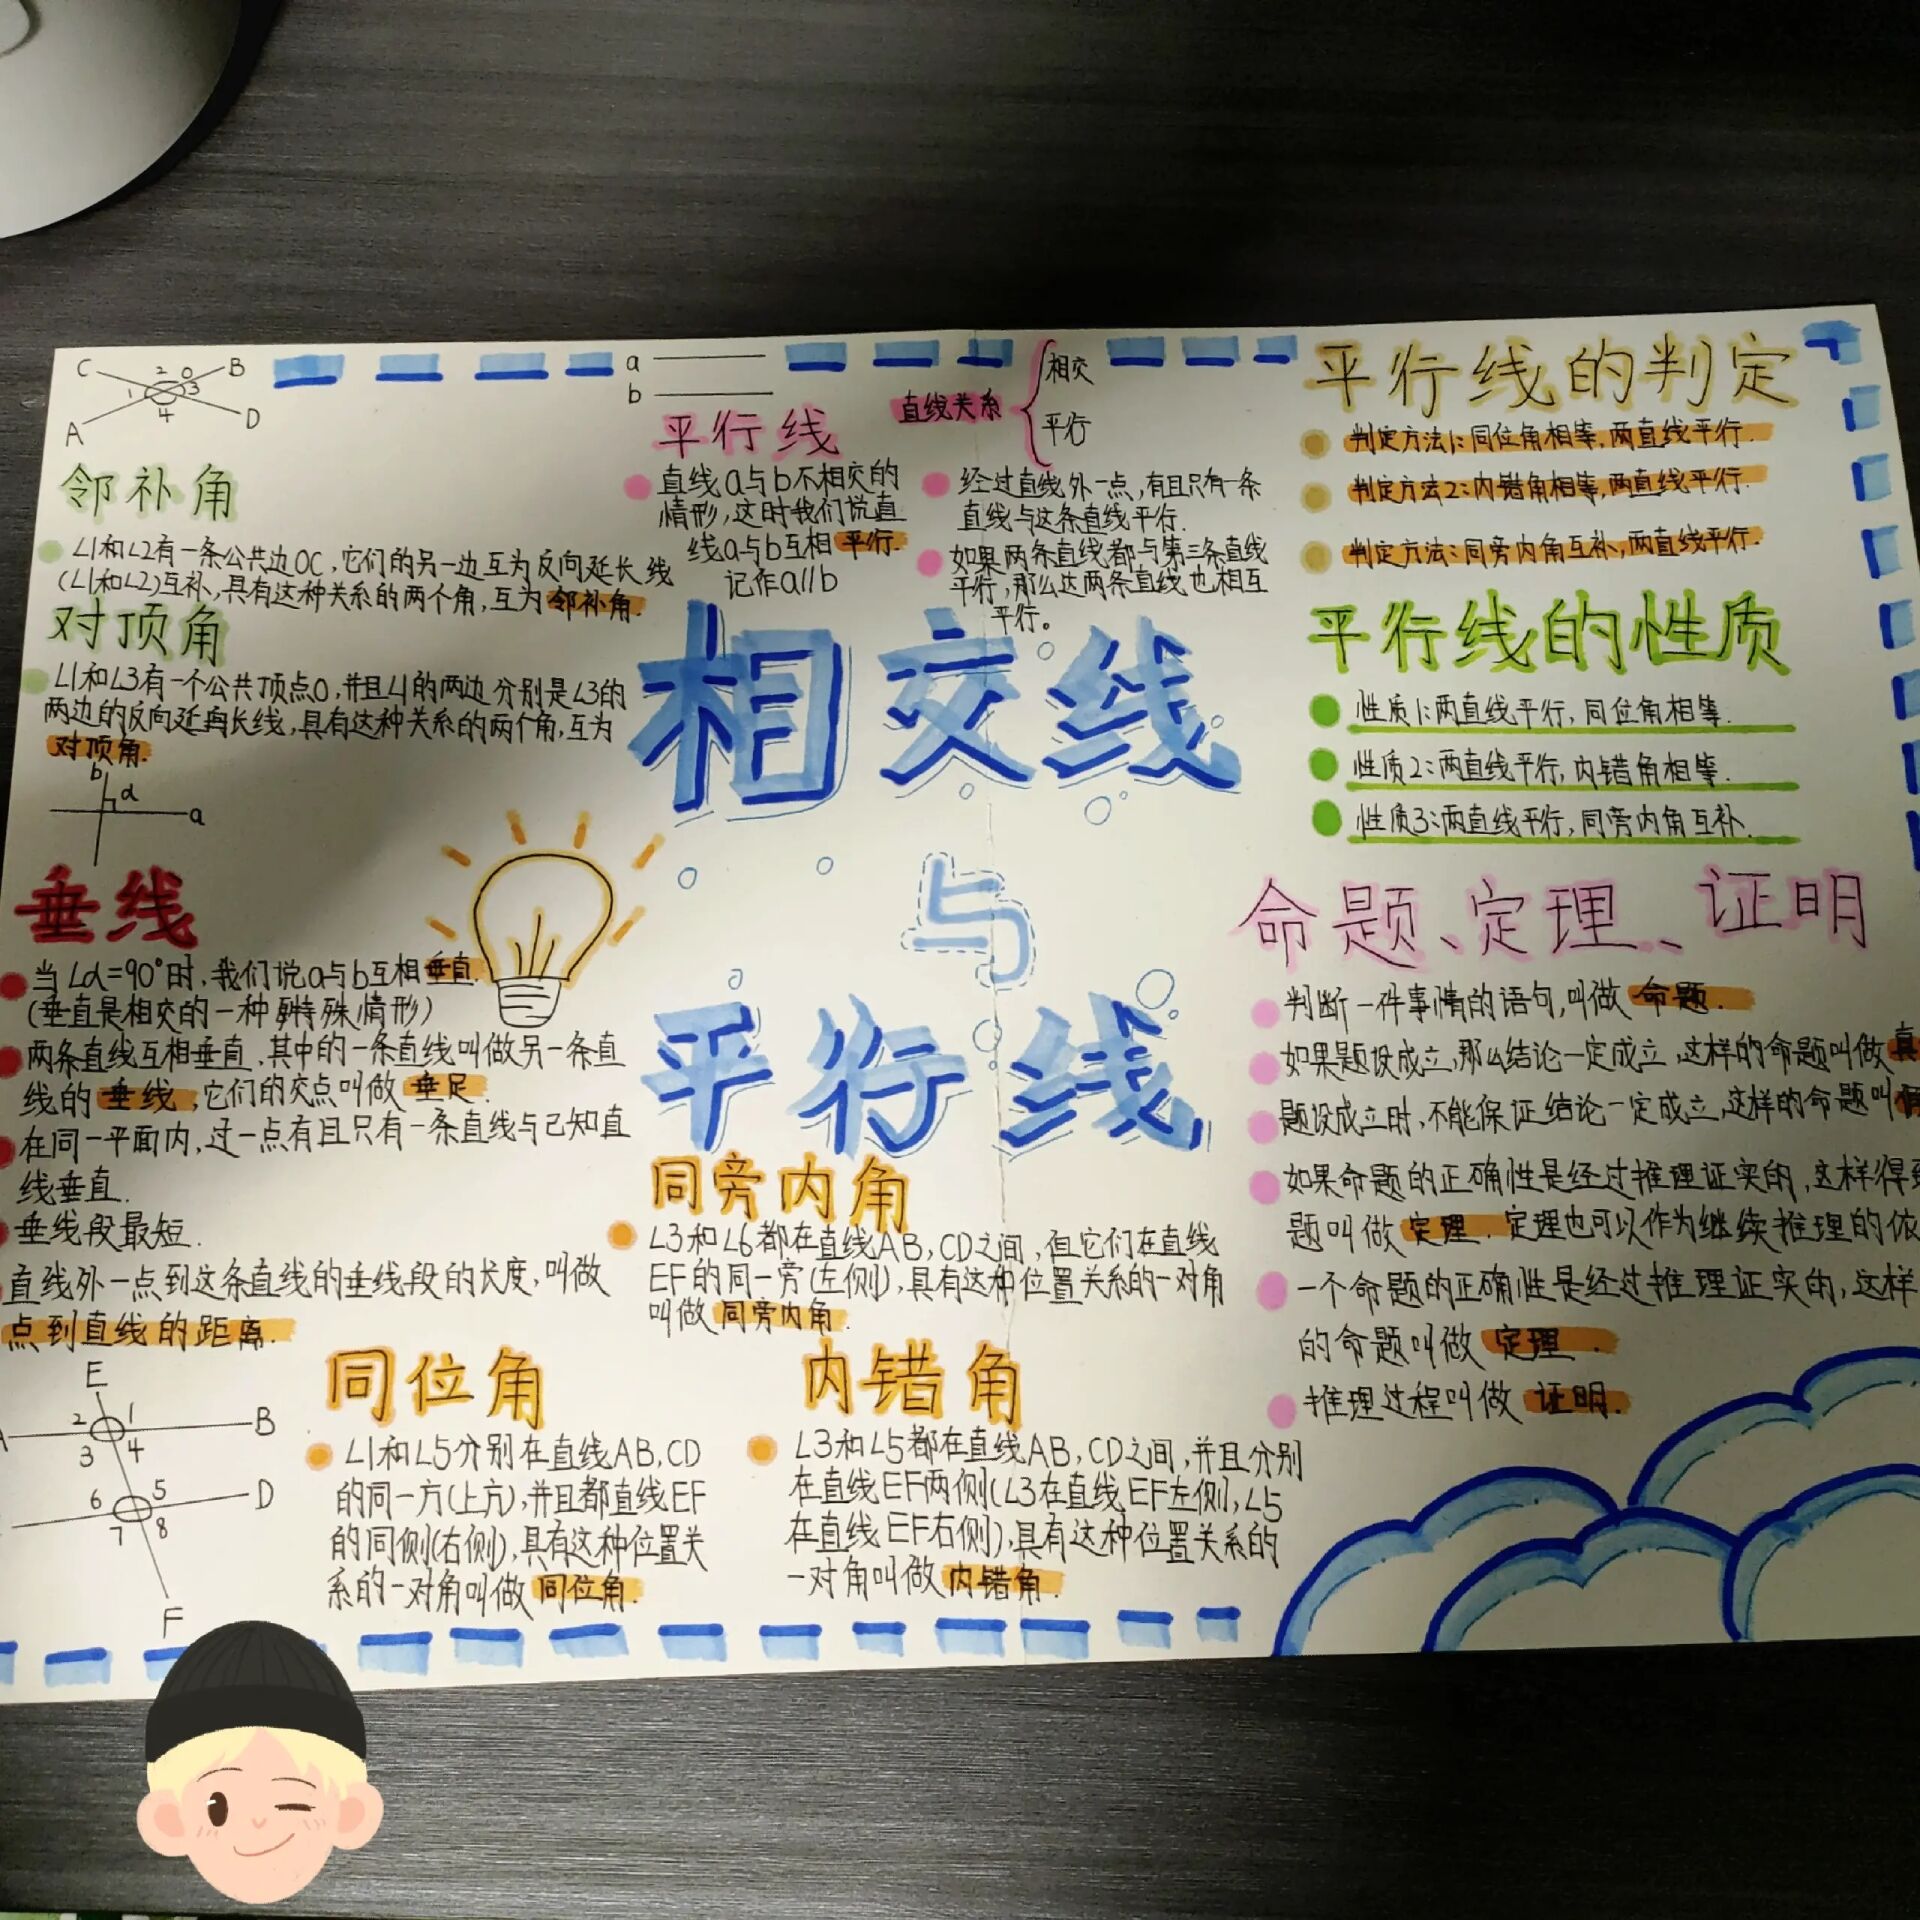 C 2 O B
1 3
A 4 D
邻补角
∠1和∠2有一条公共边OC,它们的另一边互为反向延长线
(∠1和∠2)互补,具有这种关系的两个角,互为邻补角.
对顶角
∠1和∠3有一个公共顶点O,并且∠1的两边分别是∠3的
两边的反向延长线,具有这种关系的两个角,互为
对顶角.
b
α
a
垂线
当∠α=90°时,我们说a与b互相垂直
(垂直是相交的一种特殊情形)
两条直线互相垂直,其中的一条直线叫做另一条直
线的垂线,它们的交点叫做垂足.
在同一平面内,过一点有且只有一条直线与已知直
线垂直.
垂线段最短.
直线外一点到这条直线的垂线段的长度,叫做
点到直线的距离.
E
2 1 B
A 3 4
6 5 D
7 8
F
a
b
平行线
直线a与b不相交的
情形,这时我们说直
线a与b互相平行.
记作a//b
直线关系
相交
平行
经过直线外一点,有且只有一条
直线与这条直线平行.
如果两条直线都与第三条直线
平行,那么这两条直线也相互
平行。
相交线
与
平行线
同旁内角
∠3和∠6都在直线AB,CD之间,但它们在直线
EF的同一旁(左侧),具有这种位置关系的一对角
叫做同旁内角.
同位角
∠1和∠5分别在直线AB,CD
的同一方(上方),并且都直线EF
的同侧(右侧),具有这种位置关
系的一对角叫做同位角.
内错角
∠3和∠5都在直线AB,CD之间,并且分别
在直线EF两侧(∠3在直线EF左侧,∠5
在直线EF右侧),具有这种位置关系的
一对角叫做内错角.
平行线的判定
判定方法1:同位角相等,两直线平行.
判定方法2:内错角相等,两直线平行.
判定方法:同旁内角互补,两直线平行.
平行线的性质
性质1:两直线平行,同位角相等.
性质2:两直线平行,内错角相等.
性质3:两直线平行,同旁内角互补.
命题、定理、证明
判断一件事情的语句,叫做命题.
如果题设成立,那么结论一定成立,这样的命题叫做真
题设成立时,不能保证结论一定成立,这样的命题叫
如果命题的正确性是经过推理证实的,这样得到
题叫做定理.定理也可以作为继续推理的依
一个命题的正确性是经过推理证实的,这样
的命题叫做定理.
推理过程叫做证明.